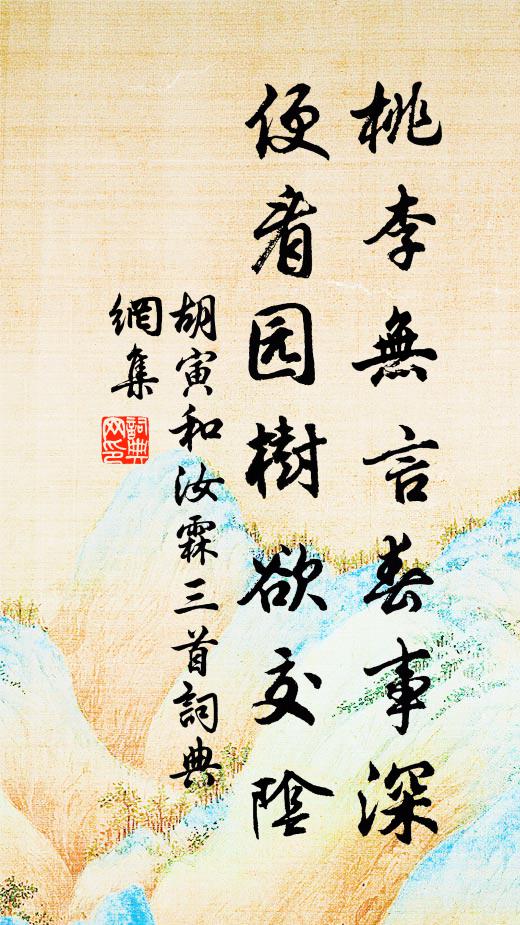 桃李無言春事深
便看园樹欲交陰
胡寅和汝霖三首詞典
網集
詞典
网印